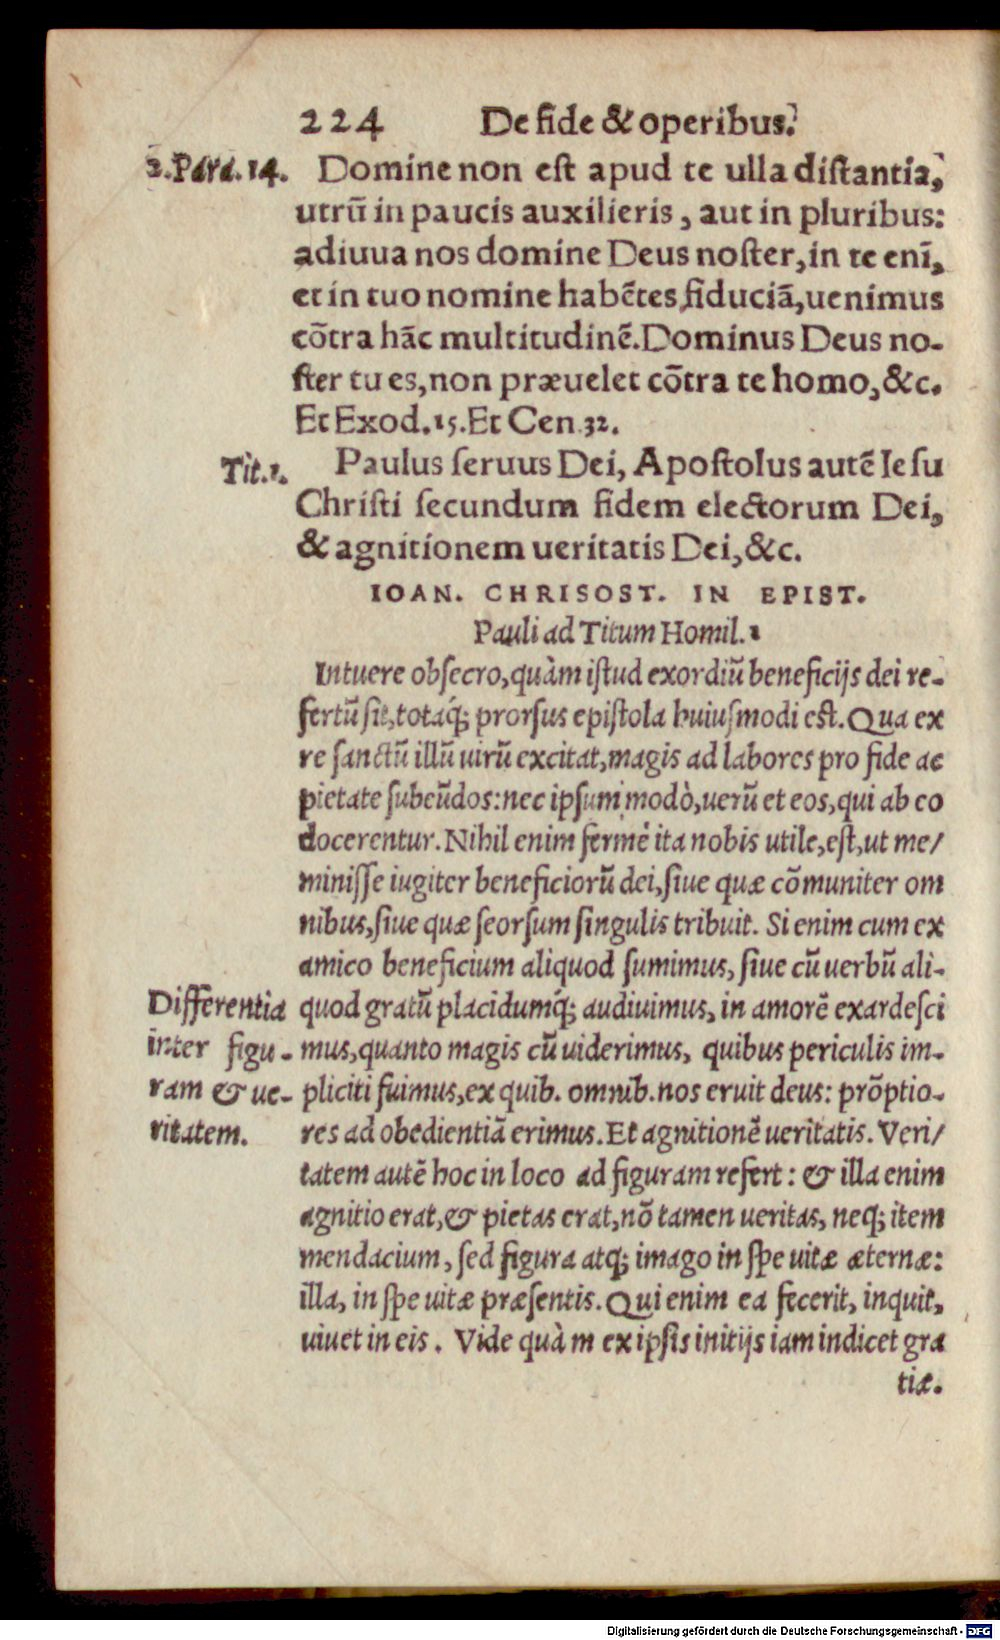 224 De fide & operibus.
2.Para.14. Domine non est apud te ulla distantia,
utrũ in paucis auxilieris, aut in pluribus:
adiuua nos domine Deus noster, in te enĩ,
et in tuo nomine habẽtes fiduciã, uenimus
cõtra hãc multitudinẽ. Dominus Deus no-
ster tu es, non præuelet cõtra te homo, &c.
Et Exod.15. Et Cen 32.
Tit.1. Paulus seruus Dei, Apostolus autẽ Iesu
Christi secundum fidem electorum Dei,
& agnitionem ueritatis Dei, &c.
IOAN. CHRISOST. IN EPIST.
Pauli ad Titum Homil.1
Intuere obsecro, quàm istud exordiũ beneficijs dei re-
fertũ sit, totaq́; prorsus epistola huiusmodi est. Qua ex
re sanctũ illũ uirũ excitat, magis ad labores pro fide ac
pietate subeũdos: nec ipsum modò, uerũ et eos, qui ab eo
docerentur. Nihil enim fermè ita nobis utile, est, ut me/
minisse iugiter beneficiorũ dei, siue quæ cõmuniter om
nibus, siue quæ seorsum singulis tribuit. Si enim cum ex
amico beneficium aliquod sumimus, siue cũ uerbũ ali-
quod gratũ placidumq́; audiuimus, in amorẽ exardesci
mus, quanto magis cũ uiderimus, quibus periculis im-
pliciti fuimus, ex quib. omnib. nos eruit deus: prõptio-
res ad obedientiã erimus. Et agnitionẽ ueritatis. Veri/
tatem autẽ hoc in loco ad figuram refert: & illa enim
agnitio erat, & pietas erat, nõ tamen ueritas, neq; item
mendacium, sed figura atq; imago in spe uitæ æternæ:
illa, in spe uitæ præsentis. Qui enim ea fecerit, inquit,
uiuet in eis. Vide quàm ex ipsis initijs iam indicet gra
tiæ.
Differentia
inter figu-
ram & ue-
ritatem.
Digitalisierung gefördert durch die Deutsche Forschungsgemeinschaft - DFG